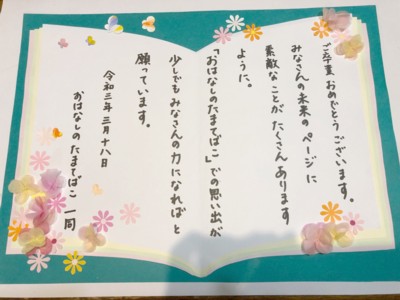 ご卒業 おめでとうございます。
みなさんの未来の ページに
素敵な ことが たくさん あります
ように。
「おはなしのたまてばこ」での思い出が
少しでも みなさんの 力になれば と
願っています。
令和三年 三月 十八日
おはなしの たまてばこ 一同